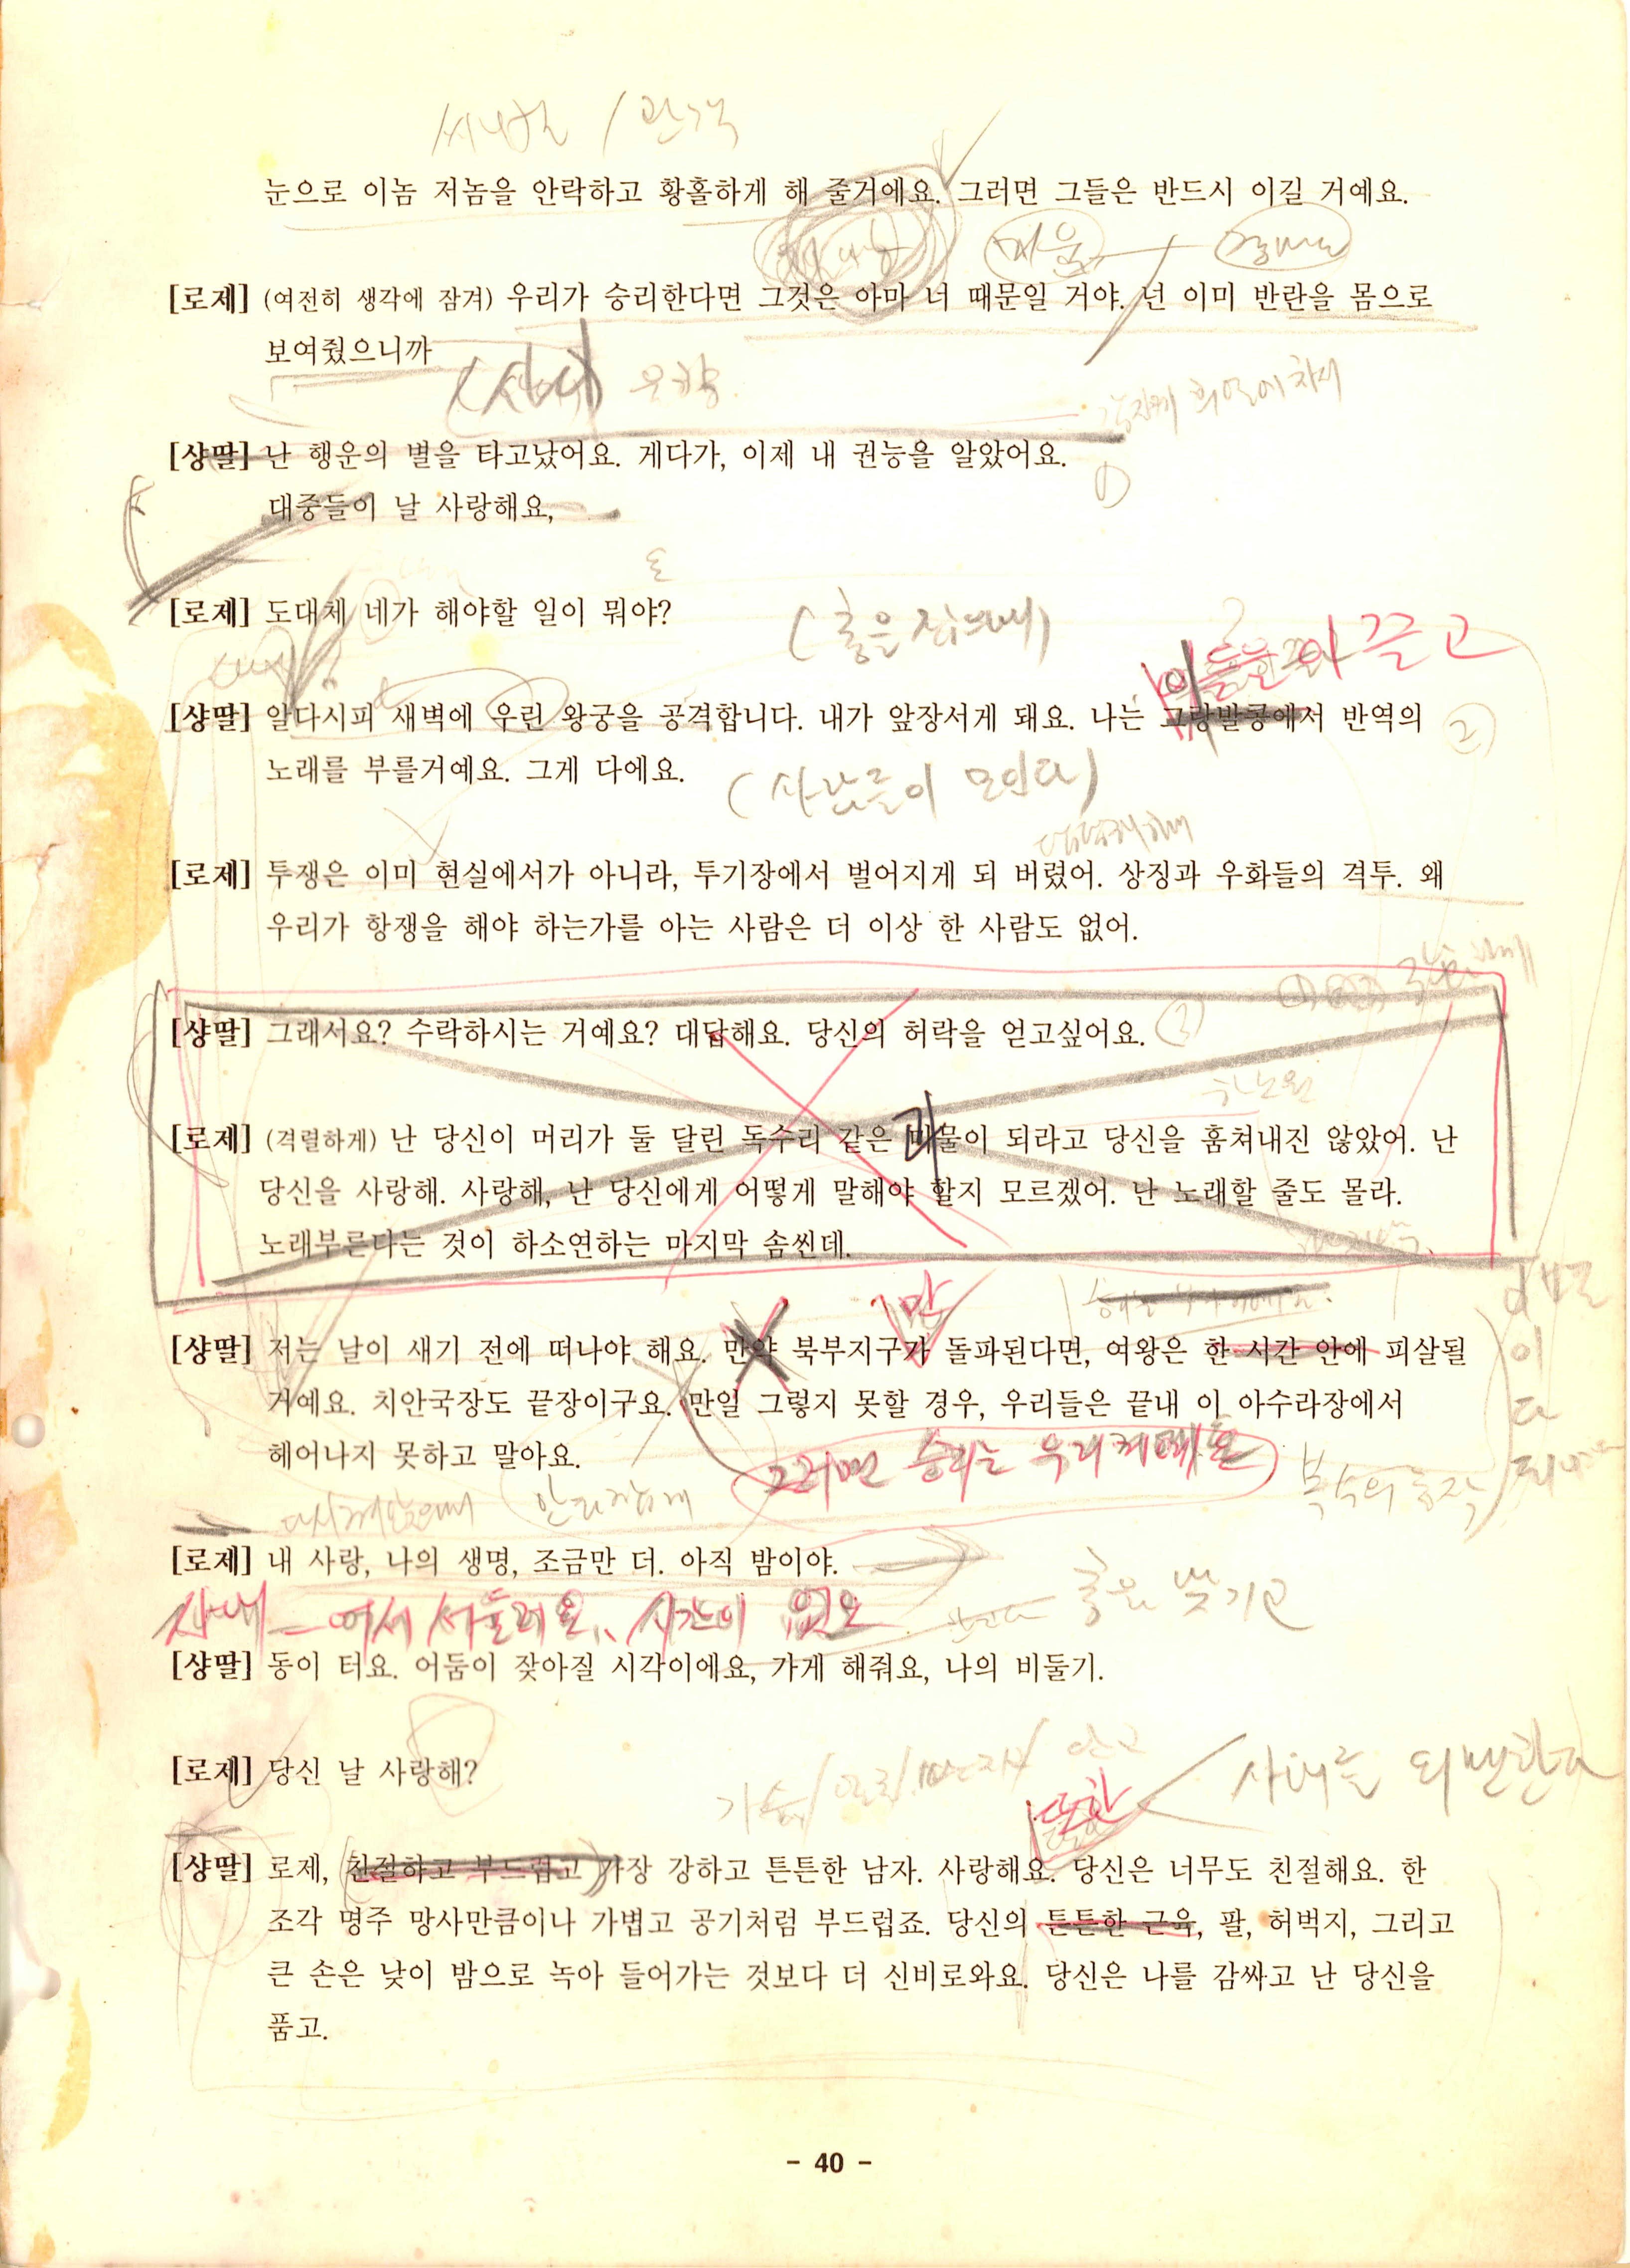 눈으로 이놈 저놈을 안락하고 황홀하게 해 줄거에요. 그러면 그들은 반드시 이길 거예요.
[로제] (여전히 생각에 잠겨) 우리가 승리한다면 그것은 아마 너 때문일 거야. 넌 이미 반란을 몸으로
보여줬으니까
[샹딸] 난 행운의 별을 타고났어요. 게다가, 이제 내 권능을 알았어요.
①
대중들이 날 사랑해요,
[로제] 도대체 네가 해야할 일이 뭐야?
이끌고
[샹딸] 알다시피 새벽에 우린 왕궁을 공격합니다. 내가 앞장서게 돼요. 나는 그랑발콩에서 반역의
②
노래를 부를거예요. 그게 다에요.
(사람들이 모인다)
[로제] 투쟁은 이미 현실에서가 아니라, 투기장에서 벌어지게 되 버렸어. 상징과 우화들의 격투. 왜
우리가 항쟁을 해야 하는가를 아는 사람은 더 이상 한 사람도 없어.
[샹딸] 그래서요? 수락하시는 거예요? 대답해요. 당신의 허락을 얻고싶어요.
③
[로제] (격렬하게) 난 당신이 머리가 둘 달린 독수리 같은 괴물이 되라고 당신을 훔쳐내진 않았어. 난
당신을 사랑해. 사랑해, 난 당신에게 어떻게 말해야 할지 모르겠어. 난 노래할 줄도 몰라.
노래부른다는 것이 하소연하는 마지막 솜씬데.
만
[샹딸] 저는 날이 새기 전에 떠나야 해요. 만약 북부지구가 돌파된다면, 여왕은 한 시간 안에 피살될
거예요. 치안국장도 끝장이구요. 만일 그렇지 못할 경우, 우리들은 끝내 이 아수라장에서
헤어나지 못하고 말아요.
그러면 승리는 우리
복수의 동작
[로제] 내 사랑, 나의 생명, 조금만 더. 아직 밤이야.
사내 - 어서 서둘러요, 시간이 없소
[샹딸] 동이 터요. 어둠이 잦아질 시각이에요, 가게 해줘요, 나의 비둘기.
[로제] 당신 날 사랑해?
사내를 외면한다
또한
[샹딸] 로제, 친절하고 부드럽고 가장 강하고 튼튼한 남자. 사랑해요. 당신은 너무도 친절해요. 한
조각 명주 망사만큼이나 가볍고 공기처럼 부드럽죠. 당신의 튼튼한 근육, 팔, 허벅지, 그리고
큰 손은 낮이 밤으로 녹아 들어가는 것보다 더 신비로와요. 당신은 나를 감싸고 난 당신을
품고.
- 40 -